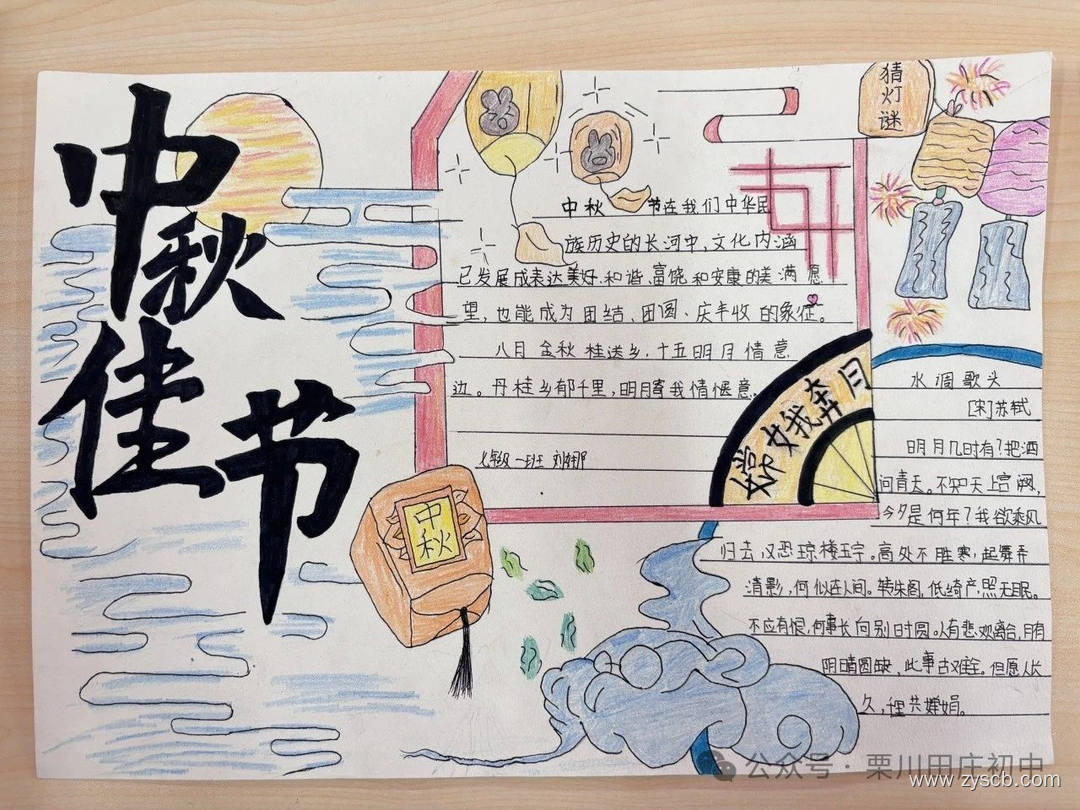 中秋
佳节
猜灯谜
中秋 节在我们中华民
族历史的长河中,文化内涵
已发展成表达美好、和谐、富饶和安康的美满愿
望,也能成为团结、团圆、庆丰收的象征。
八月金秋桂送乡,十五明月情意
边。丹桂乡郁千里,明月 我情惬意
七年级一班
嫦娥奔月
中秋
水调歌头
[宋]苏轼
明月几时有?把酒
问青天。不知天上宫阙,
今夕是何年?我欲乘风
归去,又恐琼楼玉宇。高处不胜寒,起舞弄
清影,何似在人间。转朱阁,低绮户,照无眠。
不应有恨,何事长向别时圆。人有悲欢离合,月有
阴晴圆缺,此事古难全。但愿人长
久, 共婵娟。
公众号·栗川田庄初中
www.zyscb.com